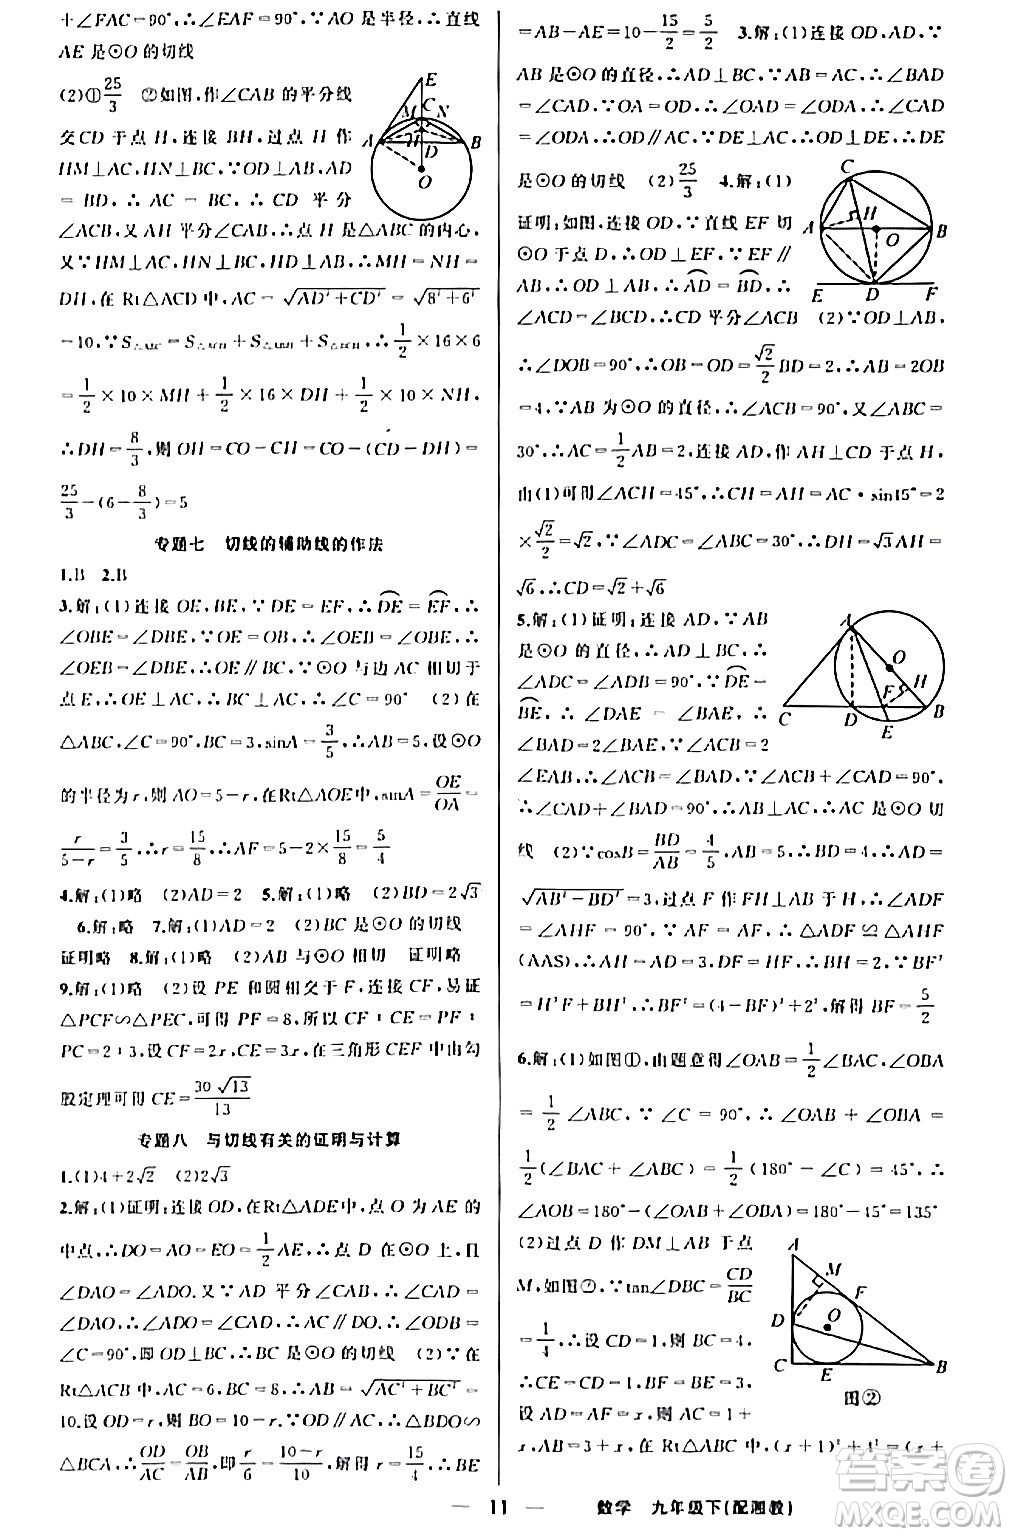 +∠FAC=90°,∴∠FAE=90°,∵AO 是半径,∴直线
AE 是⊙O 的切线
(2)①25/3 ②如图,作∠CAB 的平分线
交 CD 于点 H,连接 BH,过点 H 作
HM⊥AC,HN⊥BC,∵OD⊥AB,∴AD
=BD,∴AC=BC,∴CD 平分
∠ACB,又 AH 平分∠CAB,∴点 H 是△ABC 的内心,
又∵HM⊥AC,HN⊥BC,HD⊥AB,∴MH=NH=
DH,在 Rt△ACD 中,AC=√(AD²+CD²)=√(8²+6²)
=10,∵S△ABC=S△ACH+S△ABH+S△BCH,∴1/2×16×6
=1/2×10×MH+1/2×16×DH+1/2×10×NH,
∴DH=8/3,则 OH=CO-CH=CO-(CD-DH)=
25/3-(6-8/3)=5
专题七 切线的辅助线的作法
1.B 2.B
3.解:(1)连接 OE,BE,∵DE=EF,∴DE=EF,∴
∠OBE=∠DBE,∵OE=OB,∴∠OEB=∠OBE,∴
∠OEB=∠DBE,∴OE∥BC,∵⊙O 与边 AC 相切于
点 E,∴OE⊥AC,∴BC⊥AC,∴∠C=90° (2)在
△ABC,∠C=90°,BC=3,sinA=3/5,∴AB=5,设⊙O
的半径为 r,则 AO=5-r,在 Rt△AOE 中,sinA=OE/OA=
r/(5-r)=3/5,∴r=15/8,∴AF=5-2×15/8=5/4
4.解:(1)略 (2)AD=2 5.解:(1)略 (2)BD=2√3
6.解:略 7.解:(1)AD=2 (2)BC 是⊙O 的切线
证明略 8.解:(1)略 (2)AB 与⊙O 相切 证明略
9.解:(1)略 (2)设 PE 和圆相交于 F,连接 CF,易证
△PCF∽△PEC,可得 PF=8,所以 CF:CE=PF:
PC=2:3,设 CF=2x,CE=3x,在三角形 CEF 中由勾
股定理可得 CE=30√13/13
专题八 与切线有关的证明与计算
1.(1)4+2√2 (2)2√3
2.解:(1)证明:连接 OD,在 Rt△ADE 中,点 O 为 AE 的
中点,∴DO=AO=EO=1/2AE,∴点 D 在⊙O 上,且
∠DAO=∠ADO.又∵AD 平分∠CAB,∴∠CAD=
∠DAO,∴∠ADO=∠CAD,∴AC∥DO.∴∠ODB=
∠C=90°,即 OD⊥BC,∴BC 是⊙O 的切线 (2)∵在
Rt△ACB 中,AC=6,BC=8,∴AB=√(AC²+BC²)=
10.设 OD=r,则 BO=10-r,∵OD∥AC,∴△BDO∽
△BCA,∴OD/AC=OB/AB,即 r/6=(10-r)/10,解得 r=15/4,∴BE
=AB-AE=10-15/2=5/2 3.解:(1)连接 OD,AD,∵
AB 是⊙O 的直径,∴AD⊥BC,∵AB=AC,∴∠BAD
=∠CAD,∵OA=OD,∴∠OAD=∠ODA,∴∠CAD
=∠ODA,∴OD∥AC,∵DE⊥AC,∴OD⊥DE,∴DE
是⊙O 的切线 (2)25/3 4.解:(1)
证明:如图,连接 OD,∵直线 EF 切
⊙O 于点 D,∴OD⊥EF,∵EF∥
AB,∴OD⊥AB,∴AD=BD,∴
∠ACD=∠BCD,∴CD 平分∠ACB (2)∵OD⊥AB,
∴∠DOB=90°,∴OB=OD=√2/2BD=2,∴AB=2OB
=4,∵AB 为⊙O 的直径,∴∠ACB=90°,又∠ABC=
30°,∴AC=1/2AB=2,连接 AD,作 AH⊥CD 于点 H,
由(1)可得∠ACH=45°,∴CH=AH=AC·sin45°=2
×√2/2=√2,∵∠ADC=∠ABC=30°,∴DH=√3AH=
√6,∴CD=√2+√6
5.解:(1)证明:连接 AD,∵AB
是⊙O 的直径,∴AD⊥BC,∴
∠ADC=∠ADB=90°,∵DE=
BE,∴∠DAE=∠BAE,∴
∠BAD=2∠BAE,∵∠ACB=2
∠EAB,∴∠ACB=∠BAD,∵∠ACB+∠CAD=90°,
∴∠CAD+∠BAD=90°,∴AB⊥AC,∴AC 是⊙O 切
线 (2)∵cosB=BD/AB=4/5,AB=5,∴BD=4,∴AD=
√(AB²-BD²)=3,过点 F 作 FH⊥AB 于点 H,∴∠ADF
=∠AHF=90°,∵AF=AF,∴△ADF≌△AHF
(AAS),∴AH=AD=3,DF=HF,∴BH=2,∵BF²
=H²F+BH²,∴BF²=(4-BF)²+2²,解得 BF=5/2
6.解:(1)如图①,由题意得∠OAB=1/2∠BAC,∠OBA
=1/2∠ABC,∵∠C=90°,∴∠OAB+∠OBA=
1/2(∠BAC+∠ABC)=1/2(180°-∠C)=45°,∴
∠AOB=180°-(∠OAB+∠OBA)=180°-45°=135°
(2)过点 D 作 DM⊥AB 于点
M,如图②,∵tan∠DBC=CD/BC
=1/4,∴设 CD=1,则 BC=4,
∴CE=CD=1,BF=BE=3,
设 AD=AF=x,则 AC=1+
x,AB=3+x,在 Rt△ABC 中,(x+1)²+4²=(x+
E
C
M
N
A
H
B
D
O
C
H
A
O
B
E
D
F
A
O
H
F
C
D
B
E
A
M
F
D
O
C
E
B
图②
— 11 — 数学 九年级下(配湘教)